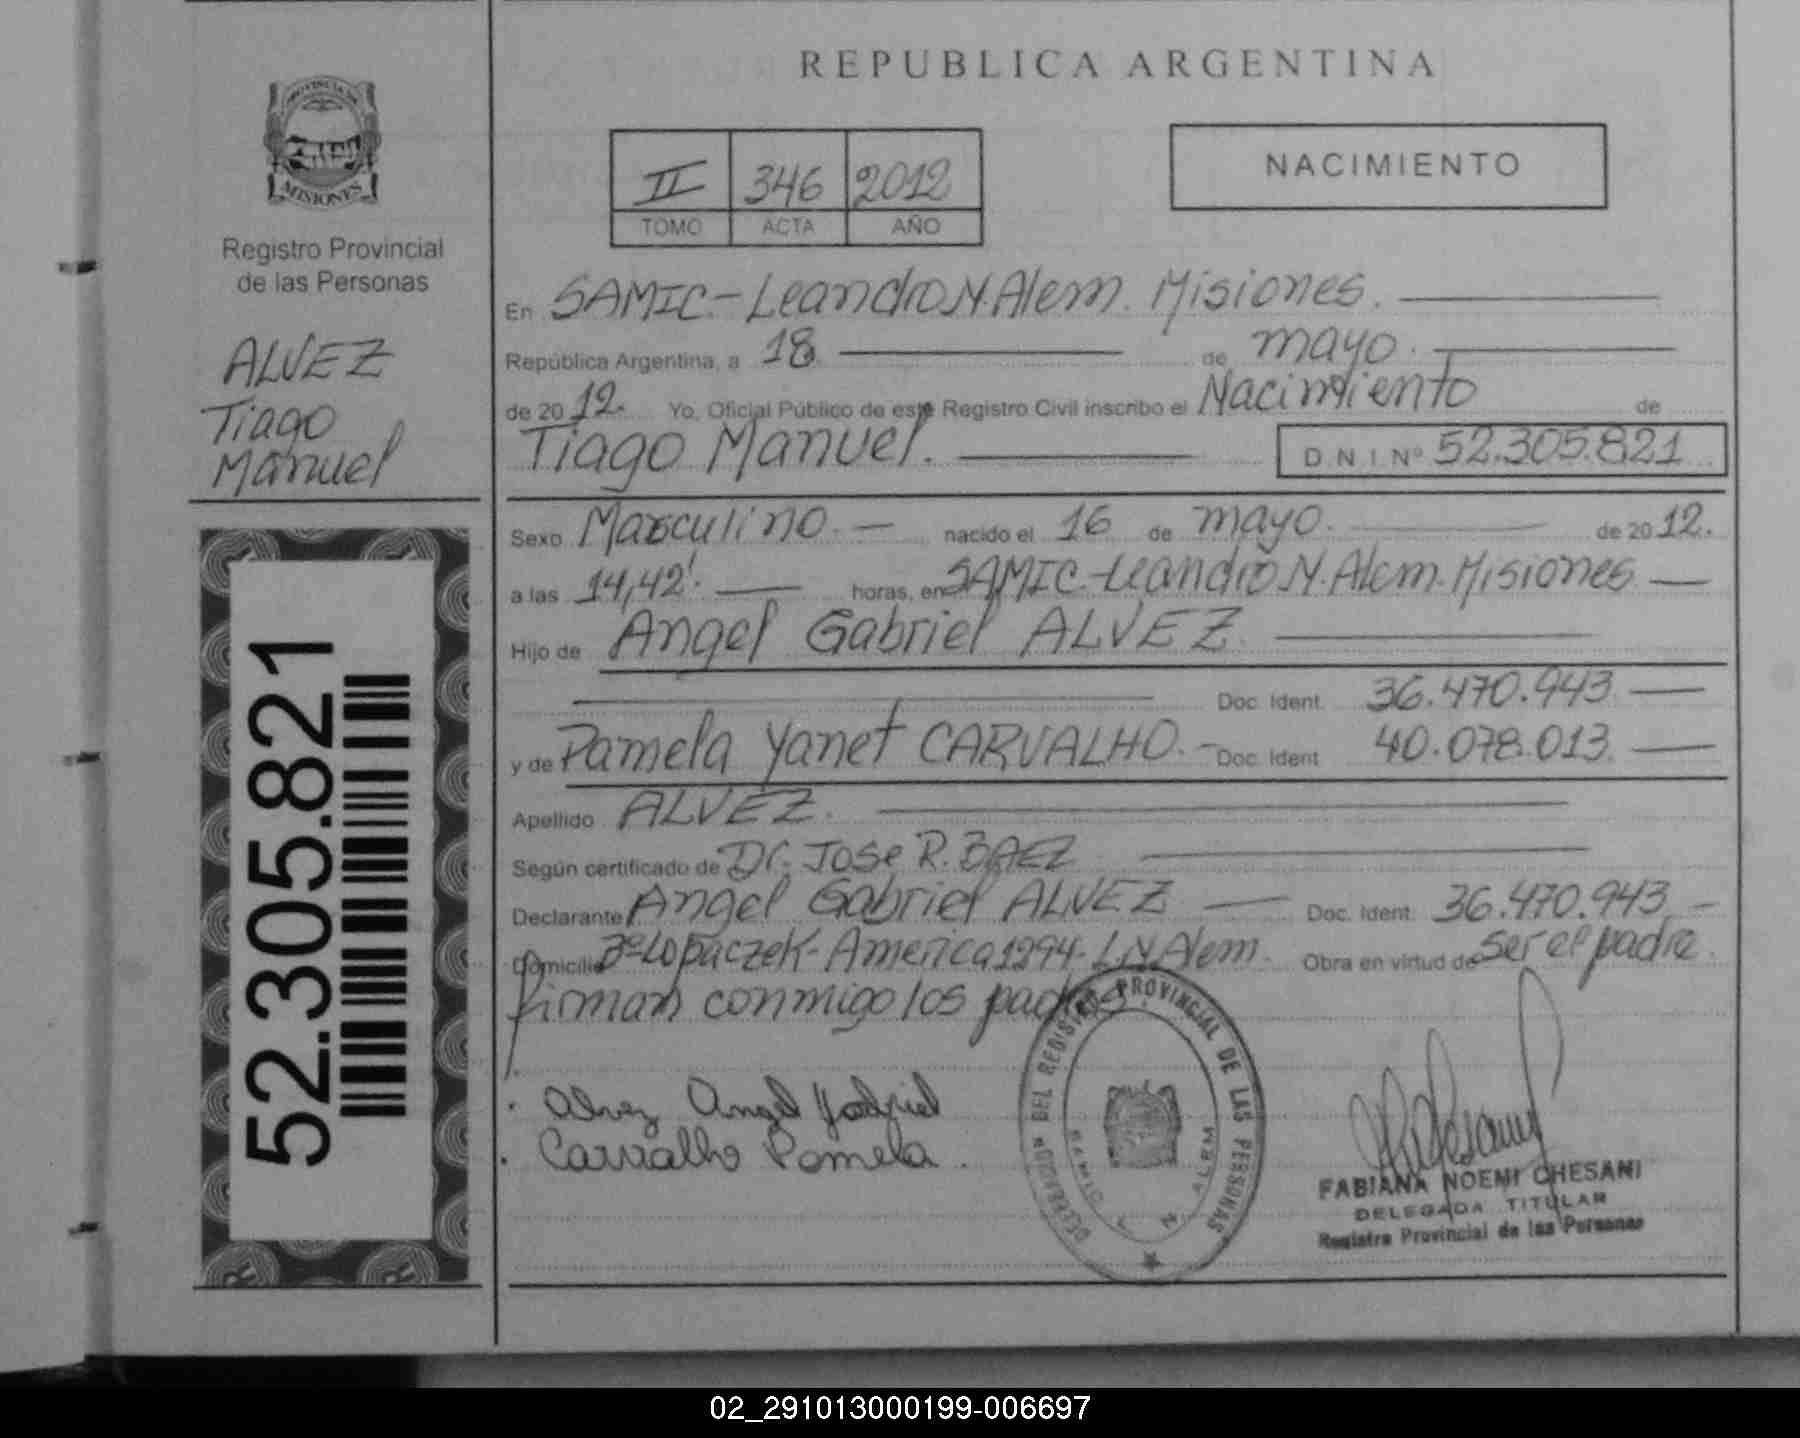 PROVINCIA DE
MISIONES
Registro Provincial
de las Personas
ALVEZ
Tiago
Manuel
52.305.821
REPUBLICA ARGENTINA
II 346 2012
TOMO ACTA AÑO
NACIMIENTO
En SAMIC.- Leandro N. Alem. Misiones.
República Argentina, a 18 de mayo.
de 2012. Yo, Oficial Público de este Registro Civil inscribo el Nacimiento de
Tiago Manuel. D.N.I. Nº 52.305.821
Sexo Masculino.- nacido el 16 de mayo. de 2012.
a las 14,42'. horas, en SAMIC-Leandro N. Alem. Misiones
Hijo de Angel Gabriel ALVEZ.
Doc. Ident. 36.470.943
y de Pamela Yanet CARVALHO.- Doc. Ident. 40.078.013
Apellido ALVEZ.
Según certificado de Dr. Jose R. BAEZ
Declarante Angel Gabriel ALVEZ Doc. Ident. 36.470.943
Domicilio Bº Lopaczek-America 1294-L.N.Alem. Obra en virtud de ser el padre.
firman conmigo los padres.
Alvez Angel Gabriel
Carvalho Pamela.
DELEGACION DEL REGISTRO PROVINCIAL DE LAS PERSONAS
SAMIC L N ALEM
FABIANA NOEMI CHESANI
DELEGADA TITULAR
Registro Provincial de las Personas
02_291013000199-006697